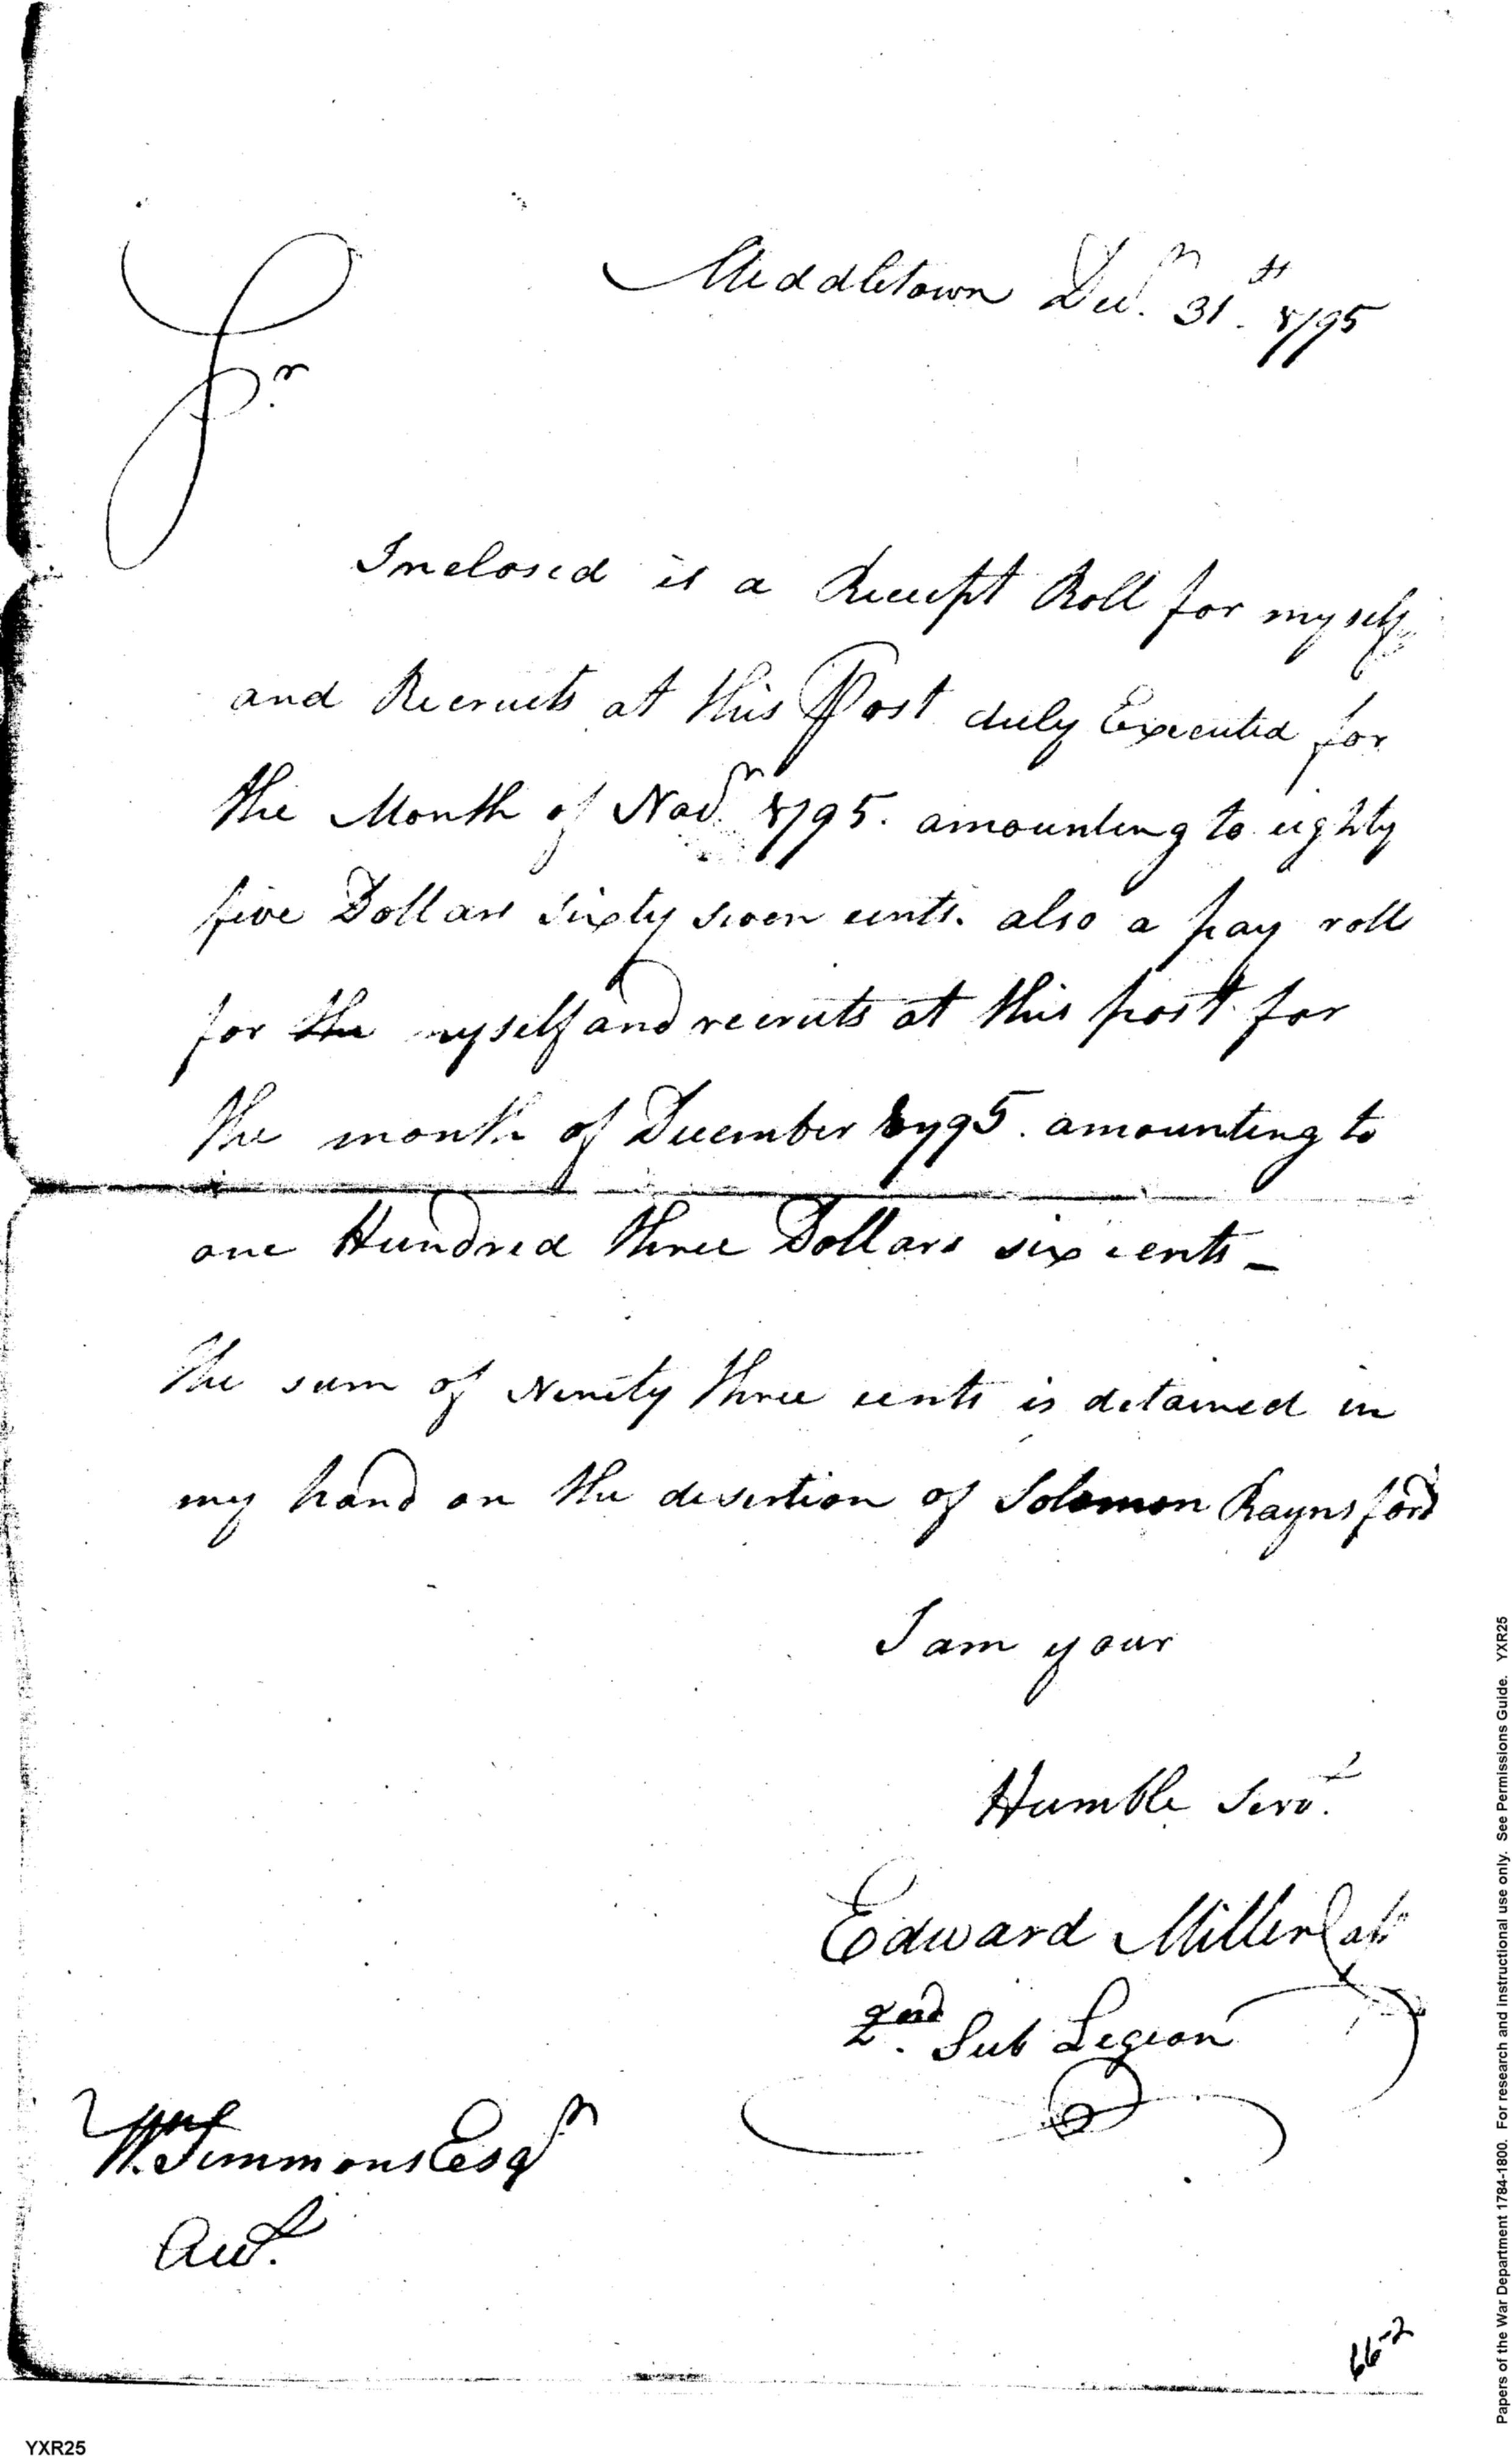 Middletown Decr. 31th. 1795
Sr.
Inclosed is a Receipt Roll for myself
and Recruits at this Post duly Executed for
the Month of Novr. 1795. amounting to eighty
five Dollars sixty seven cents. also a pay roll
for the myself and recruits at this post for
the month of December 1795. amounting to
one Hundred three Dollars six cents -
The sum of Ninety three cents is detained in
my hand on the desertion of Solomon Raynsford
I am your
Humble Servt.
Edward Miller Capt
2nd. Sub Legion
Wm. Simmons Esqr
Acct.
66-2
YXR25
Papers of the War Department 1784-1800. For research and instructional use only. See Permissions Guide. YXR25